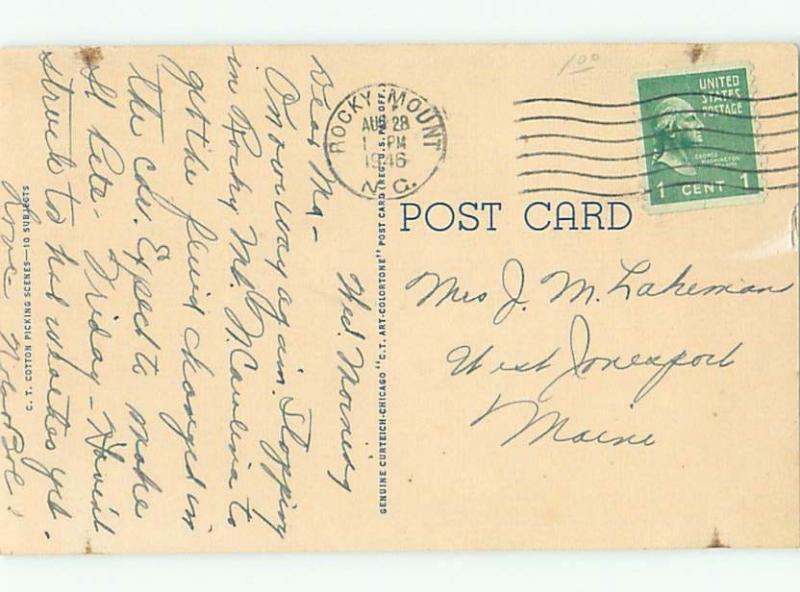 Wed. Morning
Dear Ma -
On our way again. Stopping
in Rocky Mt. N. Carolina to
get the fluid changed in
the chev. Expect to make
St Pete - Friday - Haven't
struck to hot weather yet.
Love
C. T. COTTON PICKING SCENES—10 SUBJECTS
GENUINE CURTEICH-CHICAGO "C.T. ART-COLORTONE" POST CARD (REG. U.S. PAT. OFF.)
ROCKY MOUNT
AUG 28
PM
1946
N. C.
1 00
UNITED
STATES
POSTAGE
GEORGE
WASHINGTON
1 CENT 1
POST CARD
Mrs J. M. Lakeman
West Jonesport
Maine